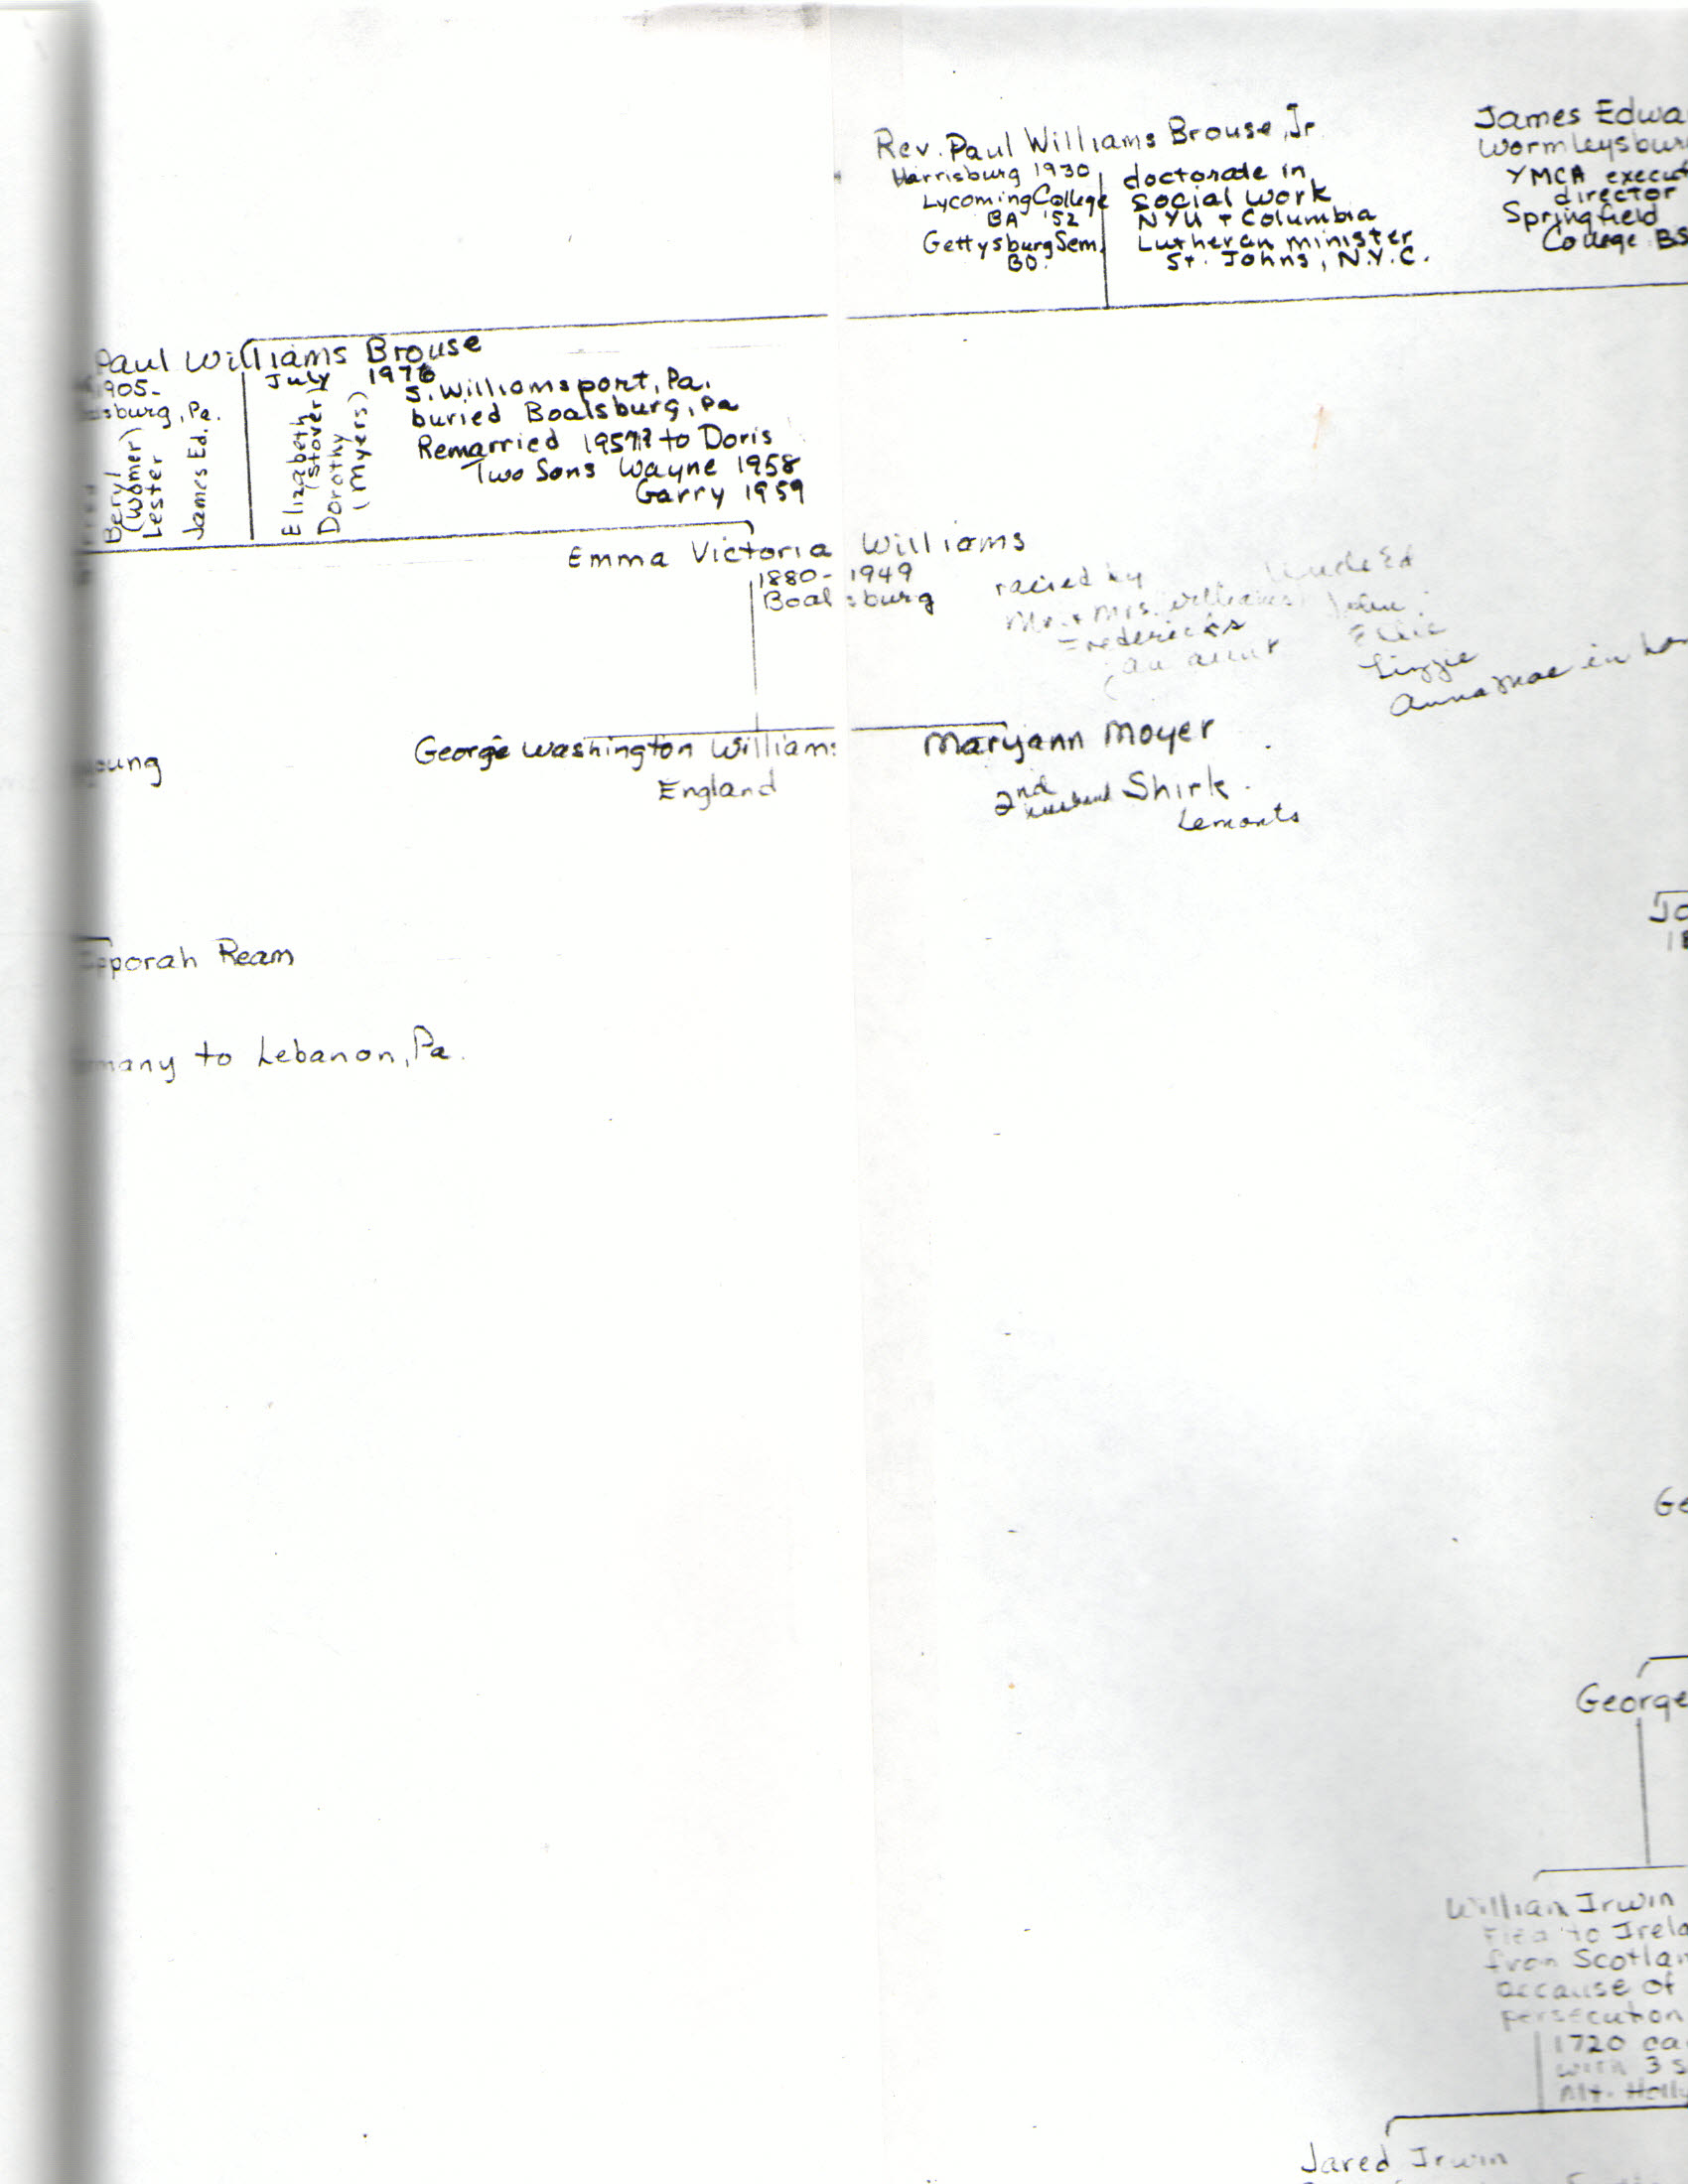 Rev. Paul Williams Brouse, Jr.
Harrisburg 1930
Lycoming College
BA '52
Gettysburg Sem.
BD.
doctorate in
social work
NYU + Columbia
Lutheran minister
St. Johns, N.Y.C.
James Edwa
Wormleysbur
YMCA execut
director
Springfield
College BS
Paul Williams Brouse
1905-
sburg, Pa.
July 1976
S. Williamsport, Pa.
buried Boalsburg, Pa
Remarried 1957? to Doris
Two Sons Wayne 1958
Garry 1959
Beryl
(Womer)
Lester
James Ed.
Elizabeth
(Stover)
Dorothy
(Myers)
Emma Victoria Williams
1880-1949
Boalsburg
raised by
Mr. + Mrs. Williams
Fredericks
Uncle Ed
John
Lizzie
Anna Mae in
oung
George Washington Williams
England
Maryann Moyer
2nd husband Shirk.
Lemonts
Jo
18
pporah Ream
many to Lebanon, Pa.
Ge
George
William Irwin
Fled to Irela
from Scotlan
because of
persecution
1720 ca
with 3 s
Mt. Holly
Jared Irwin